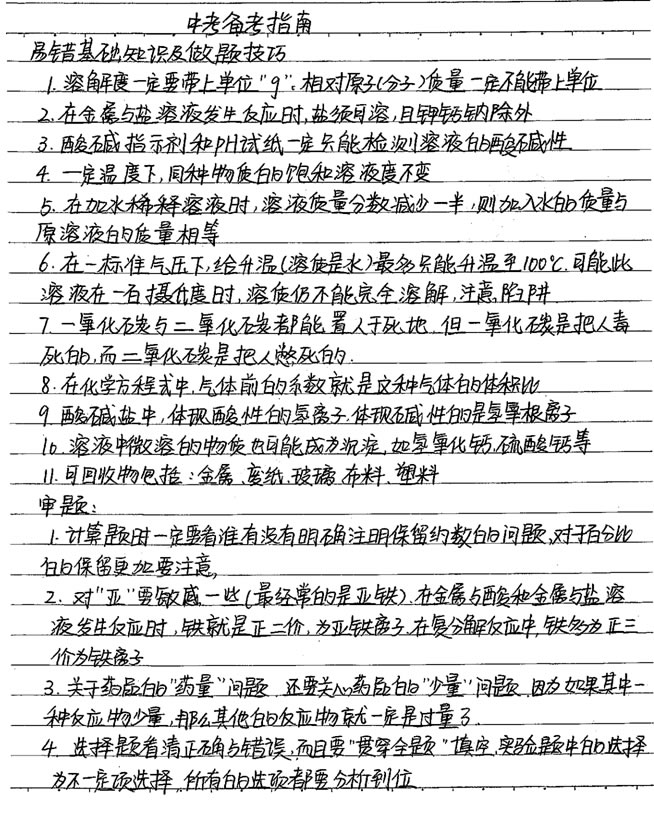 中考备考指南
易错基础知识及做题技巧
1. 溶解度一定要带上单位"g"、相对原子(分子)质量一定不能带上单位
2. 在金属与盐溶液发生反应时,盐须可溶,且钾钙钠除外
3. 酸碱指示剂和PH试纸一定只能检测溶液的酸碱性
4. 一定温度下,同种物质的饱和溶液度不变
5. 在加水稀释溶液时,溶液质量分数减少一半,则加入水的质量与
原溶液的质量相等
6. 在一标准气压下,给升温(溶质是水)最多只能升温至100℃.可能此
溶液在一百摄氏度时,溶质仍不能完全溶解,注意陷阱
7. 一氧化碳与二氧化碳都能置人于死地.但一氧化碳是把人毒
死的,而二氧化碳是把人憋死的.
8. 在化学方程式中,气体前的系数就是这种气体的体积比
9. 酸碱盐中,体现酸性的氢离子.体现碱性的是氢氧根离子
10. 溶液中微溶的物质也可能成为沉淀,如氢氧化钙,硫酸钙等
11. 可回收物包括:金属、废纸、玻璃、布料、塑料
审题:
1. 计算题时一定要看准有没有明确注明保留约数的问题,对于百分比
的保留更加要注意,
2. 对"亚"要敏感一些(最经常的是亚铁).在金属与酸和金属与盐溶
液发生反应时,铁就是正二价,为亚铁离子.在复分解反应中,铁多为正三
价为铁离子
3. 关于药品的"药量"问题.还要关心药品的"少量"问题.因为如果其中一
种反应物少量,那么其他的反应物就一定是过量了.
4. 选择题看清正确与错误,而且要"贯穿全题"填空,实验题中的选择
为不一定项选择.所有的选项都要分析到位